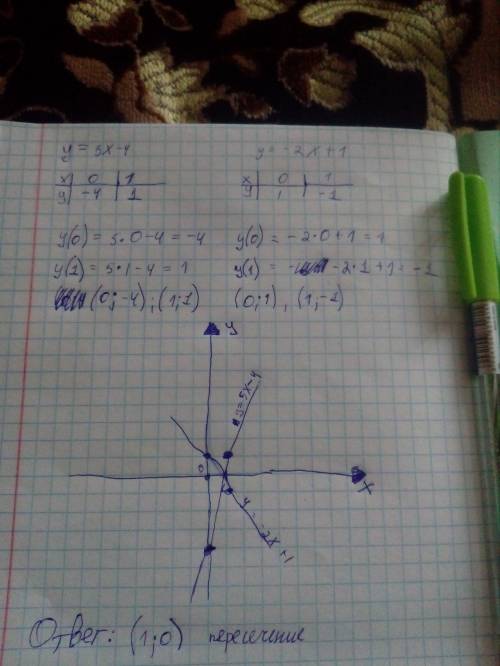 y = 5x-4
y = -2x+1
x 0 1
y -4 1
x 0 1
y 1 -1
y(0) = 5•0-4 = -4
y(0) = -2•0+1 = 1
y(1) = 5•1-4 = 1
y(1) = -2•1+1 = -1
(0;-4), (1;1)
(0;1), (1;-1)
y
y=5x-4
0
x
y = -2x+1
Ответ: (1;0) пересечение